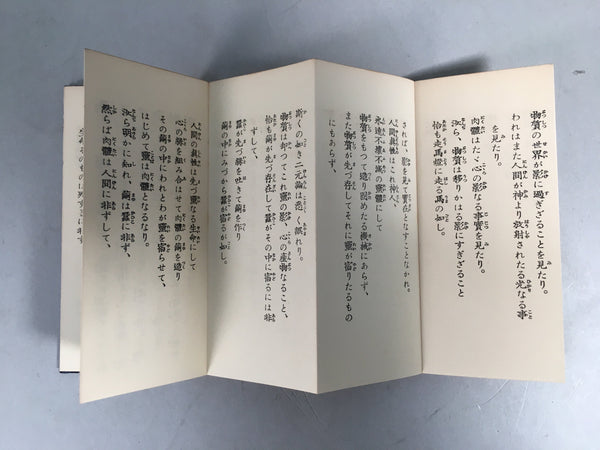 物質の世界が影に過ぎざることを見たり。
われはまた人間が神より放射されたる光なる事
を見たり。
肉體はたゞ心の影なる事實を見たり。
汝ら、物質は移りかはる影にすぎざること
恰も走馬燈に走る馬の如し。
されば、影を見て實在となすことなかれ。
人間の眞性はこれ神人、
永遠不壞不滅の靈體にして
物質をもつて造り固めたる機械にあらず、
また物質が先づ存してそれに靈が宿りたるもの
にもあらず、
斯くの如き二元論は悉く誤れり。
物質は却つてこれ靈の影、心の産物なること、
恰も繭が先づ存在して蠶がその中に宿るには非
ずして、
蠶が先づ絲を吐きて繭を作り
繭の中にみづから蠶が宿るが如し。
人間の眞性は先づ靈なる生命にして
心の絲を組み合はせて肉體の繭を造り
その繭の中にわれとわが靈を宿らせて、
はじめて靈は肉體となるなり。
汝ら明かに知れ、繭は蠶に非ず、
然らば肉體は人間に非ずして、